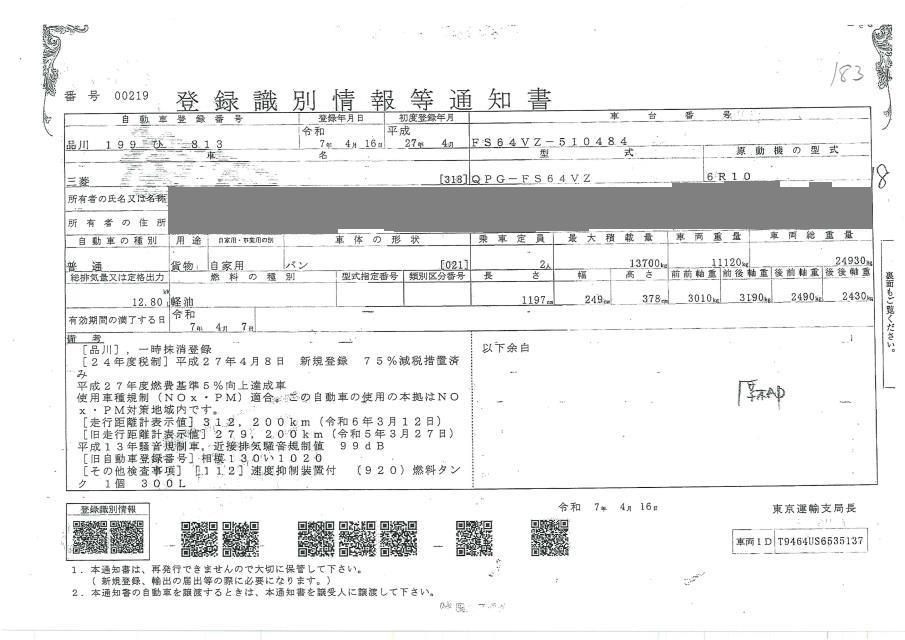 183
番号 00219 登録識別情報等通知書
自動車登録番号 登録年月日 初度登録年月 車台番号
品川 199 ひ 813 令和 7年 4月 16日 平成 27年 4月 FS64VZ-510484
車名 型式 原動機の型式
三菱 [318] QPG-FS64VZ 6R10
8
所有者の氏名又は名称
所有者の住所
自動車の種別 用途 自家用・事業用の別 車体の形状 乗車定員 最大積載量 車両重量 車両総重量
普通 貨物 自家用 バン [021] 2人 13700kg 11120kg 24930kg
総排気量又は定格出力 燃料の種別 型式指定番号 類別区分番号 長さ 幅 高さ 前前軸重 前後軸重 後前軸重 後後軸重
12.80 kW l 軽油 1197cm 249cm 378cm 3010kg 3190kg 2490kg 2430kg
有効期間の満了する日 令和 7年 4月 7日
裏面もご覧ください。
備考
[品川],一時抹消登録
[24年度税制]平成27年4月8日 新規登録 75%減税措置済
み
平成27年度燃費基準5%向上達成車
使用車種規制(NOx・PM)適合。この自動車の使用の本拠はNO
x・PM対策地域内です。
[走行距離計表示値]312,200km(令和6年3月12日)
[旧走行距離計表示値]279,200km(令和5年3月27日)
平成13年騒音規制車,近接排気騒音規制値 99dB
[旧自動車登録番号]相模130い1020
[その他検査事項][112]速度抑制装置付 (920)燃料タン
ク 1個 300L
以下余白
厚木AP
登録識別情報
令和 7年 4月 16日 東京運輸支局長
車両ID T9464US6535137
1.本通知書は、再発行できませんので大切に保管して下さい。
(新規登録、輸出の届出等の際に必要になります。)
2.本通知書の自動車を譲渡するときは、本通知書を譲受人に譲渡して下さい。